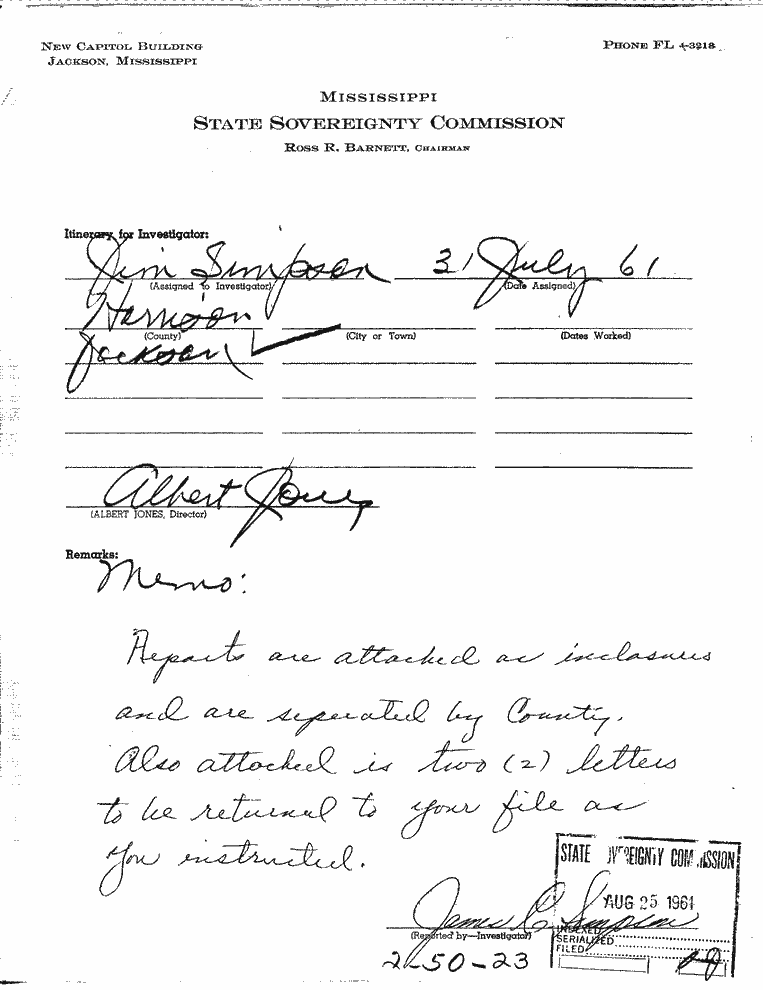 NEW CAPITOL BUILDING
JACKSON, MISSISSIPPI
PHONE FL 4-3218
MISSISSIPPI
STATE SOVEREIGNTY COMMISSION
ROSS R. BARNETT, CHAIRMAN
Itinerary for Investigator:
Jim Simpson 31 July 61
(Assigned to Investigator) (Date Assigned)
Harrison
(County) (City or Town) (Dates Worked)
Jackson
Albert Jones
(ALBERT JONES, Director)
Remarks:
Memo:
Reports are attached as inclosures
and are seperated by County.
Also attached is two (2) letters
to be returned to your file as
you instructed.
STATE SOVEREIGNTY COMMISSION
AUG 25 1961
James C Simpson
(Reported by—Investigator)
INDEXED
SERIALIZED
FILED
2-50-23